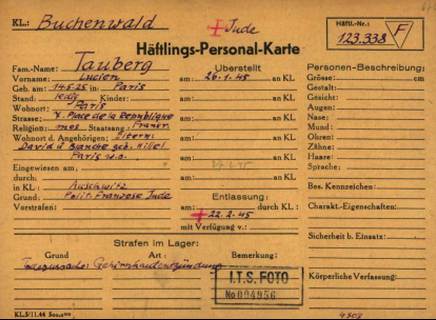 KL.: Buchenwald
Jude
Häftl.-Nr.:
123.338 F
Häftlings-Personal-Karte
Fam.-Name: Tauberg
Vorname: Lucien
Geb. am: 14.5.25 in Paris
Stand: ledig Kinder:
Wohnort: Paris
Strasse: Place de la Republique
Religion: mos. Staatsang. Franz.
Wohnort d. Angehörigen: Eltern:
David u Blanche geb. Hillel
Paris w.o.
Eingewiesen am:
durch:
in KL.: Auschwitz
Grund: Polit. Franzose Jude
Vorstrafen:
Überstellt
am: 26.1.45 an KL.
am: an KL.
am: an KL.
am: an KL.
am: an KL.
am: an KL.
Entlassung:
am: 22.2.45 durch KL.:
mit Verfügung v.:
Personen-Beschreibung:
Grösse: cm
Gestalt:
Gesicht:
Augen:
Nase:
Mund:
Ohren:
Zähne:
Haare:
Sprache:
Bes. Kennzeichen:
Charakt.-Eigenschaften:
Sicherheit b. Einsatz:
Körperliche Verfassung:
Strafen im Lager:
Grund Art: Bemerkung:
Todesursache: Gehirnhautentzündung
I.T.S. FOTO
No 004956
KL/5/11.44